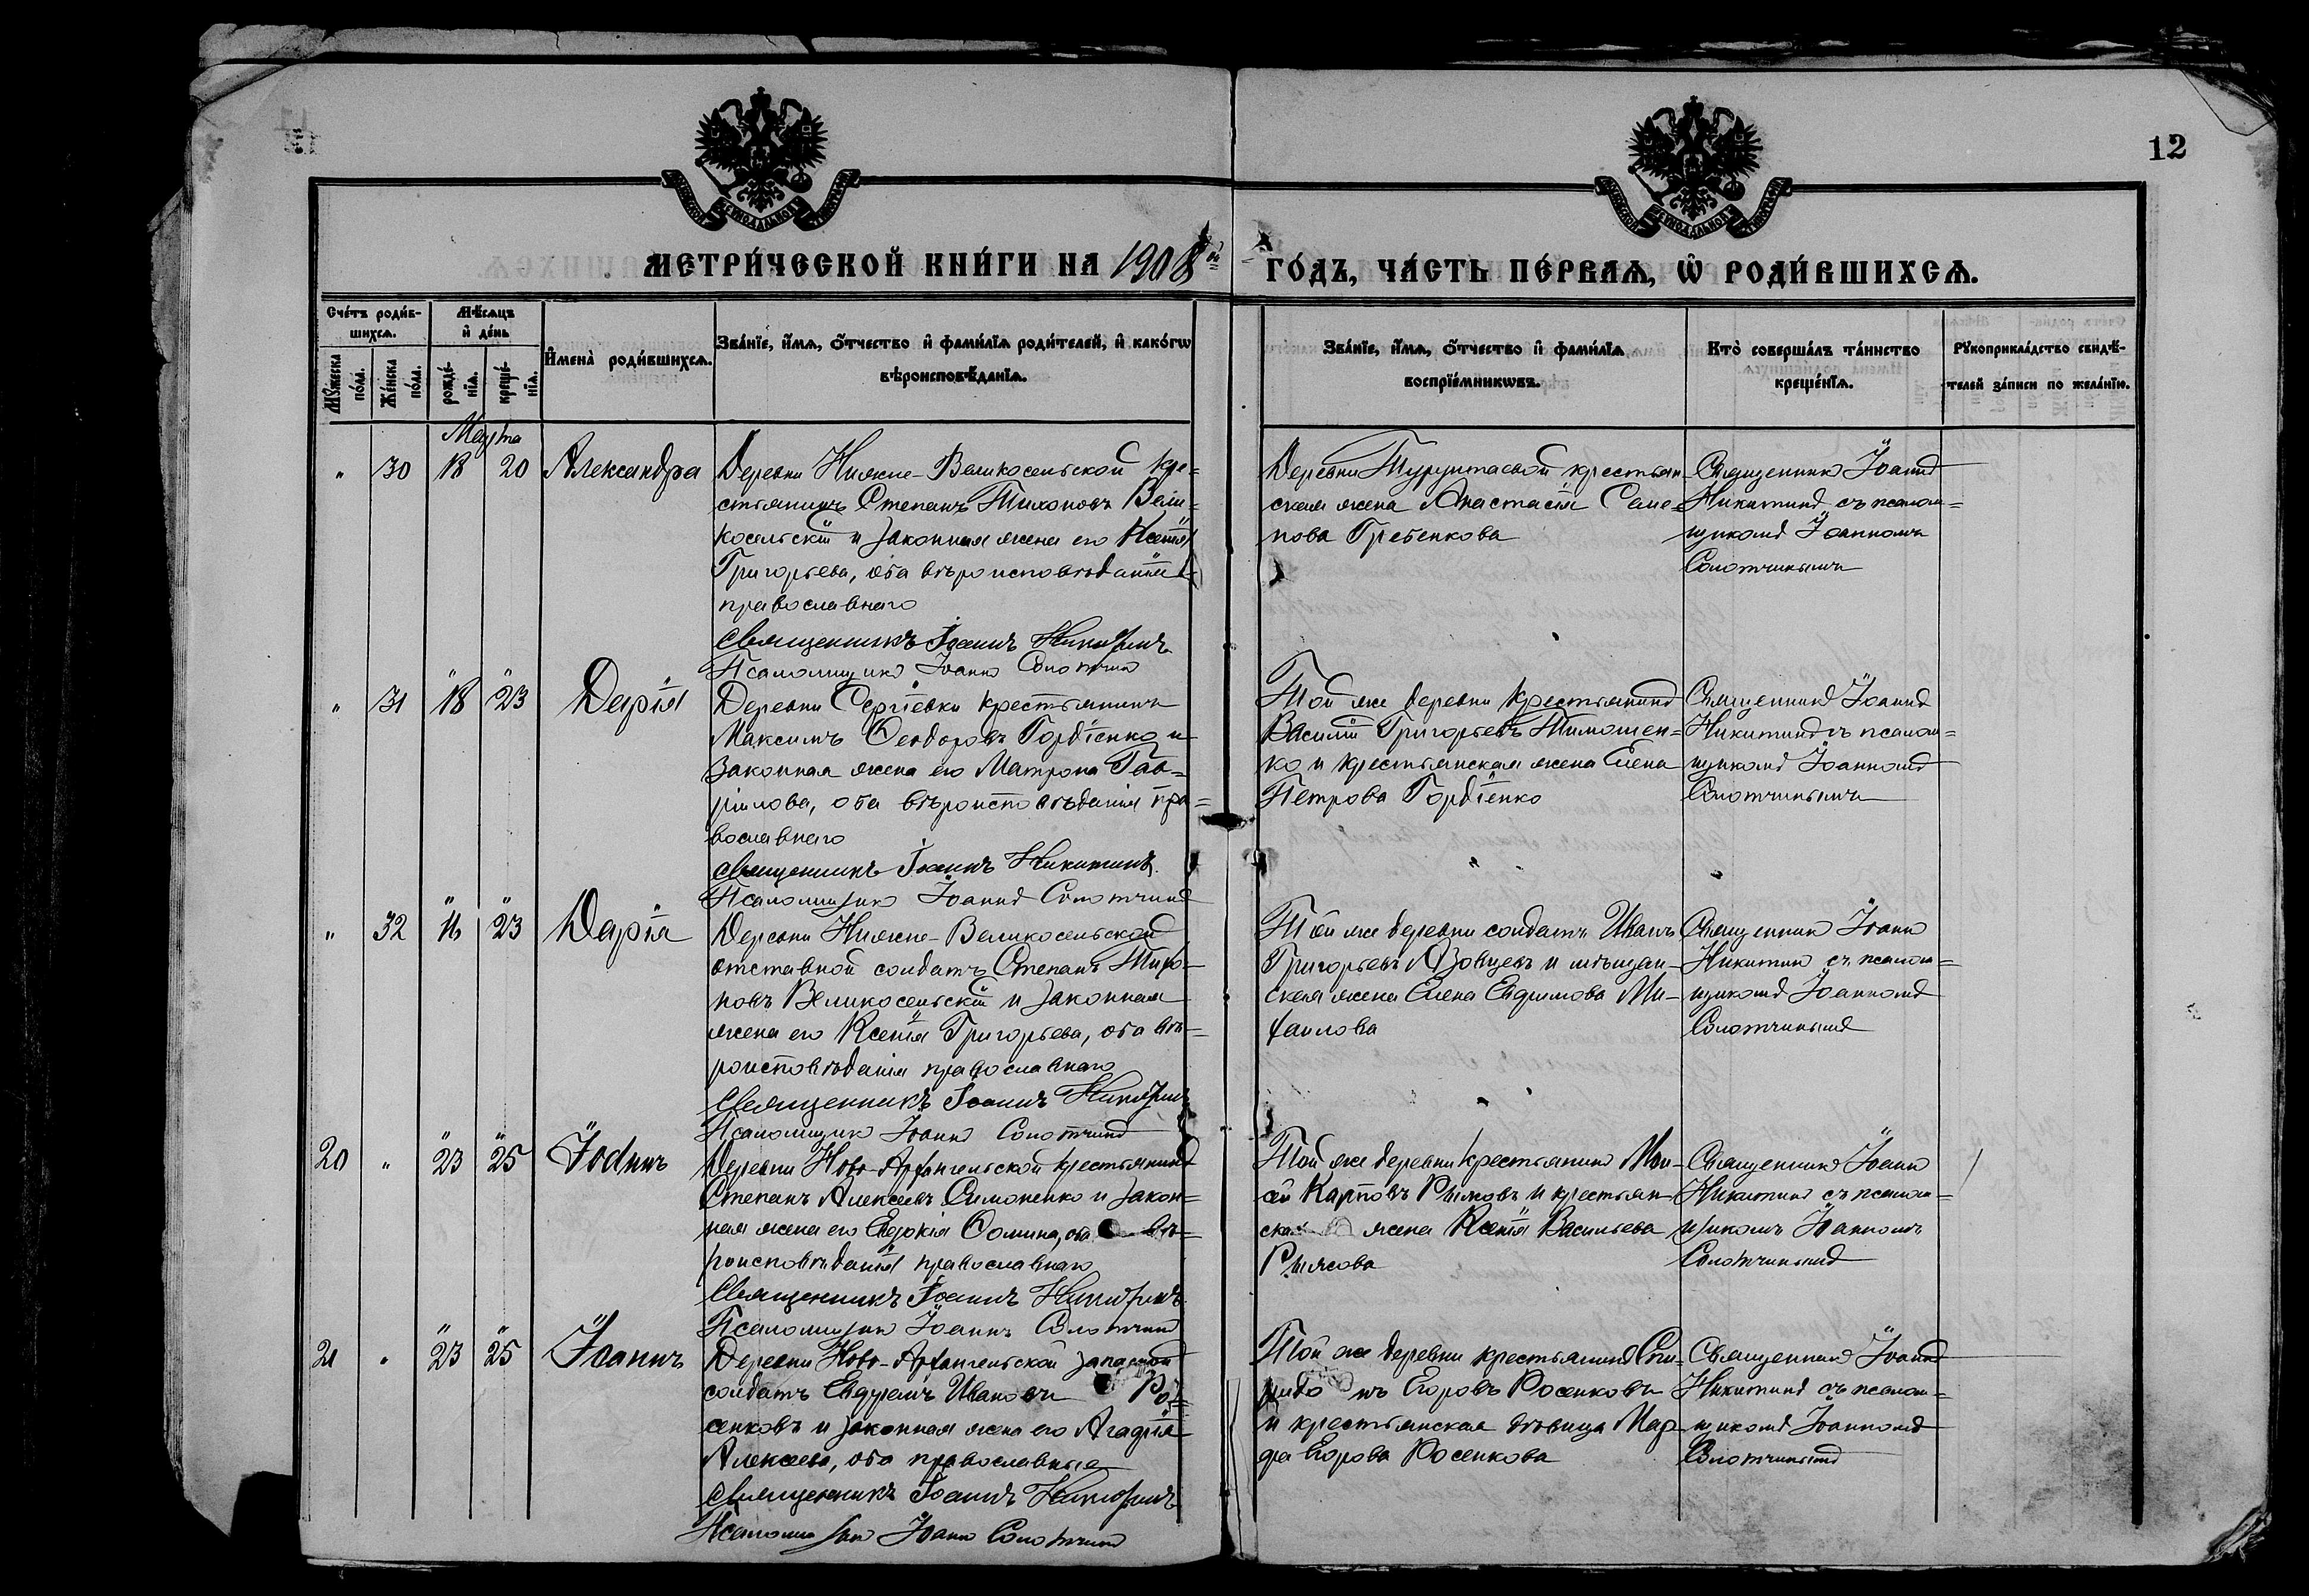 12
МЕТРИ́ЧЕСКОЙ КНИ́ГИ НА 1908й ГО́ДЪ, ЧА́СТЬ ПЕ́РВАѦ, Ѡ РОДИ́ВШИХСѦ.
Сче́тъ роди́в-
шихсѧ.
Мꙋ́жеска по́ла.
Же́нска по́ла.
Мѣ́сѧцъ
и҆ де́нь
рожде́-
нїѧ.
креще́-
нїѧ.
И҆мена̀ роди́вшихсѧ.
Зва́нїе, и҆́мѧ, ѻ҆́тчество и҆ фами́лїѧ роди́телей, и҆ како́гѡ
вѣроисповѣ́данїѧ.
Зва́нїе, и҆́мѧ, ѻ҆́тчество и҆ фами́лїѧ
воспрїе́мникѡвъ.
Кто̀ соверша́лъ та́инство
креще́нїѧ.
Рꙋкоприкла́дство свидѣ́-
телей за́писи по жела́нїю.
Марта
" 30 18 20 Александра
Деревни Нижне-Великосельской кре=
стьянинъ Степанъ Тихоновъ Вели=
косельскій и законная жена его Ксенія
Григорьева, оба вѣроисповѣданія
православнаго
Священникъ Іоаннъ Никитинъ
Псаломщикъ Іоаннъ Солотчинъ
Деревни Турунтаевой крестьян-
ская жена Анастасія Семе=
нова Гребенкова
Священникъ Іоаннъ
Никитинъ съ псалом=
щикомъ Іоанномъ
Солотчинымъ
" 31 18 23 Дарія
Деревни Сергіевки крестьянинъ
Максимъ Ѳеодоровъ Гордіенко и
законная жена его Матрона Гав=
рилова, оба вѣроисповѣданія пра=
вославнаго
Священникъ Іоаннъ Никитинъ
Псаломщикъ Іоаннъ Солотчинъ
Той же деревни крестьянинъ
Василій Григорьевъ Тимошен=
ко и крестьянская жена Елена
Петрова Гордіенко
Священникъ Іоаннъ
Никитинъ съ псалом=
щикомъ Іоанномъ
Солотчинымъ
" 32 23 Дарія
Деревни Нижне-Великосельской
отставной солдатъ Степанъ Тихо-
новъ Великосельскій и законная
жена его Ксенія Григорьева, оба вѣ=
роисповѣданія православнаго
Священникъ Іоаннъ Никитинъ
Псаломщикъ Іоаннъ Солотчинъ
Той же деревни солдатъ Иванъ
Григорьевъ Азовцевъ и мѣщан-
ская жена Елена Евфимова Ми-
хаилова
Священникъ Іоаннъ
Никитинъ съ псалом=
щикомъ Іоанномъ
Солотчинымъ
20 " 23 25 Іоаннъ
Деревни Ново-Архангельской крестьянинъ
Степанъ Алексѣевъ Симоненко и закон=
ная жена его Евдокія Ѳомина, оба вѣ=
роисповѣданія православнаго
Священникъ Іоаннъ Никитинъ
Псаломщикъ Іоаннъ Солотчинъ
Той же деревни крестьянинъ Мои-
сей Карповъ и крестьян-
ская жена Ксенія Васильева
Священникъ Іоаннъ
Никитинъ съ псалом=
щикомъ Іоанномъ
Солотчинымъ
21 " 23 25 Іоаннъ
Деревни Ново-Архангельской запасной
солдатъ Евдремъ Ивановъ Ро=
сенковъ и законная жена его Агафія
Алексеева, оба православные
Священникъ Іоаннъ Никитинъ
Псаломщикъ Іоаннъ Солотчинъ
Той же деревни крестьянинъ Спи-
ридонъ Егоровъ Росенковъ
и крестьянская дѣвица Мар-
фа Егорова Росенкова
Священникъ Іоаннъ
Никитинъ съ псалом=
щикомъ Іоанномъ
Солотчинымъ